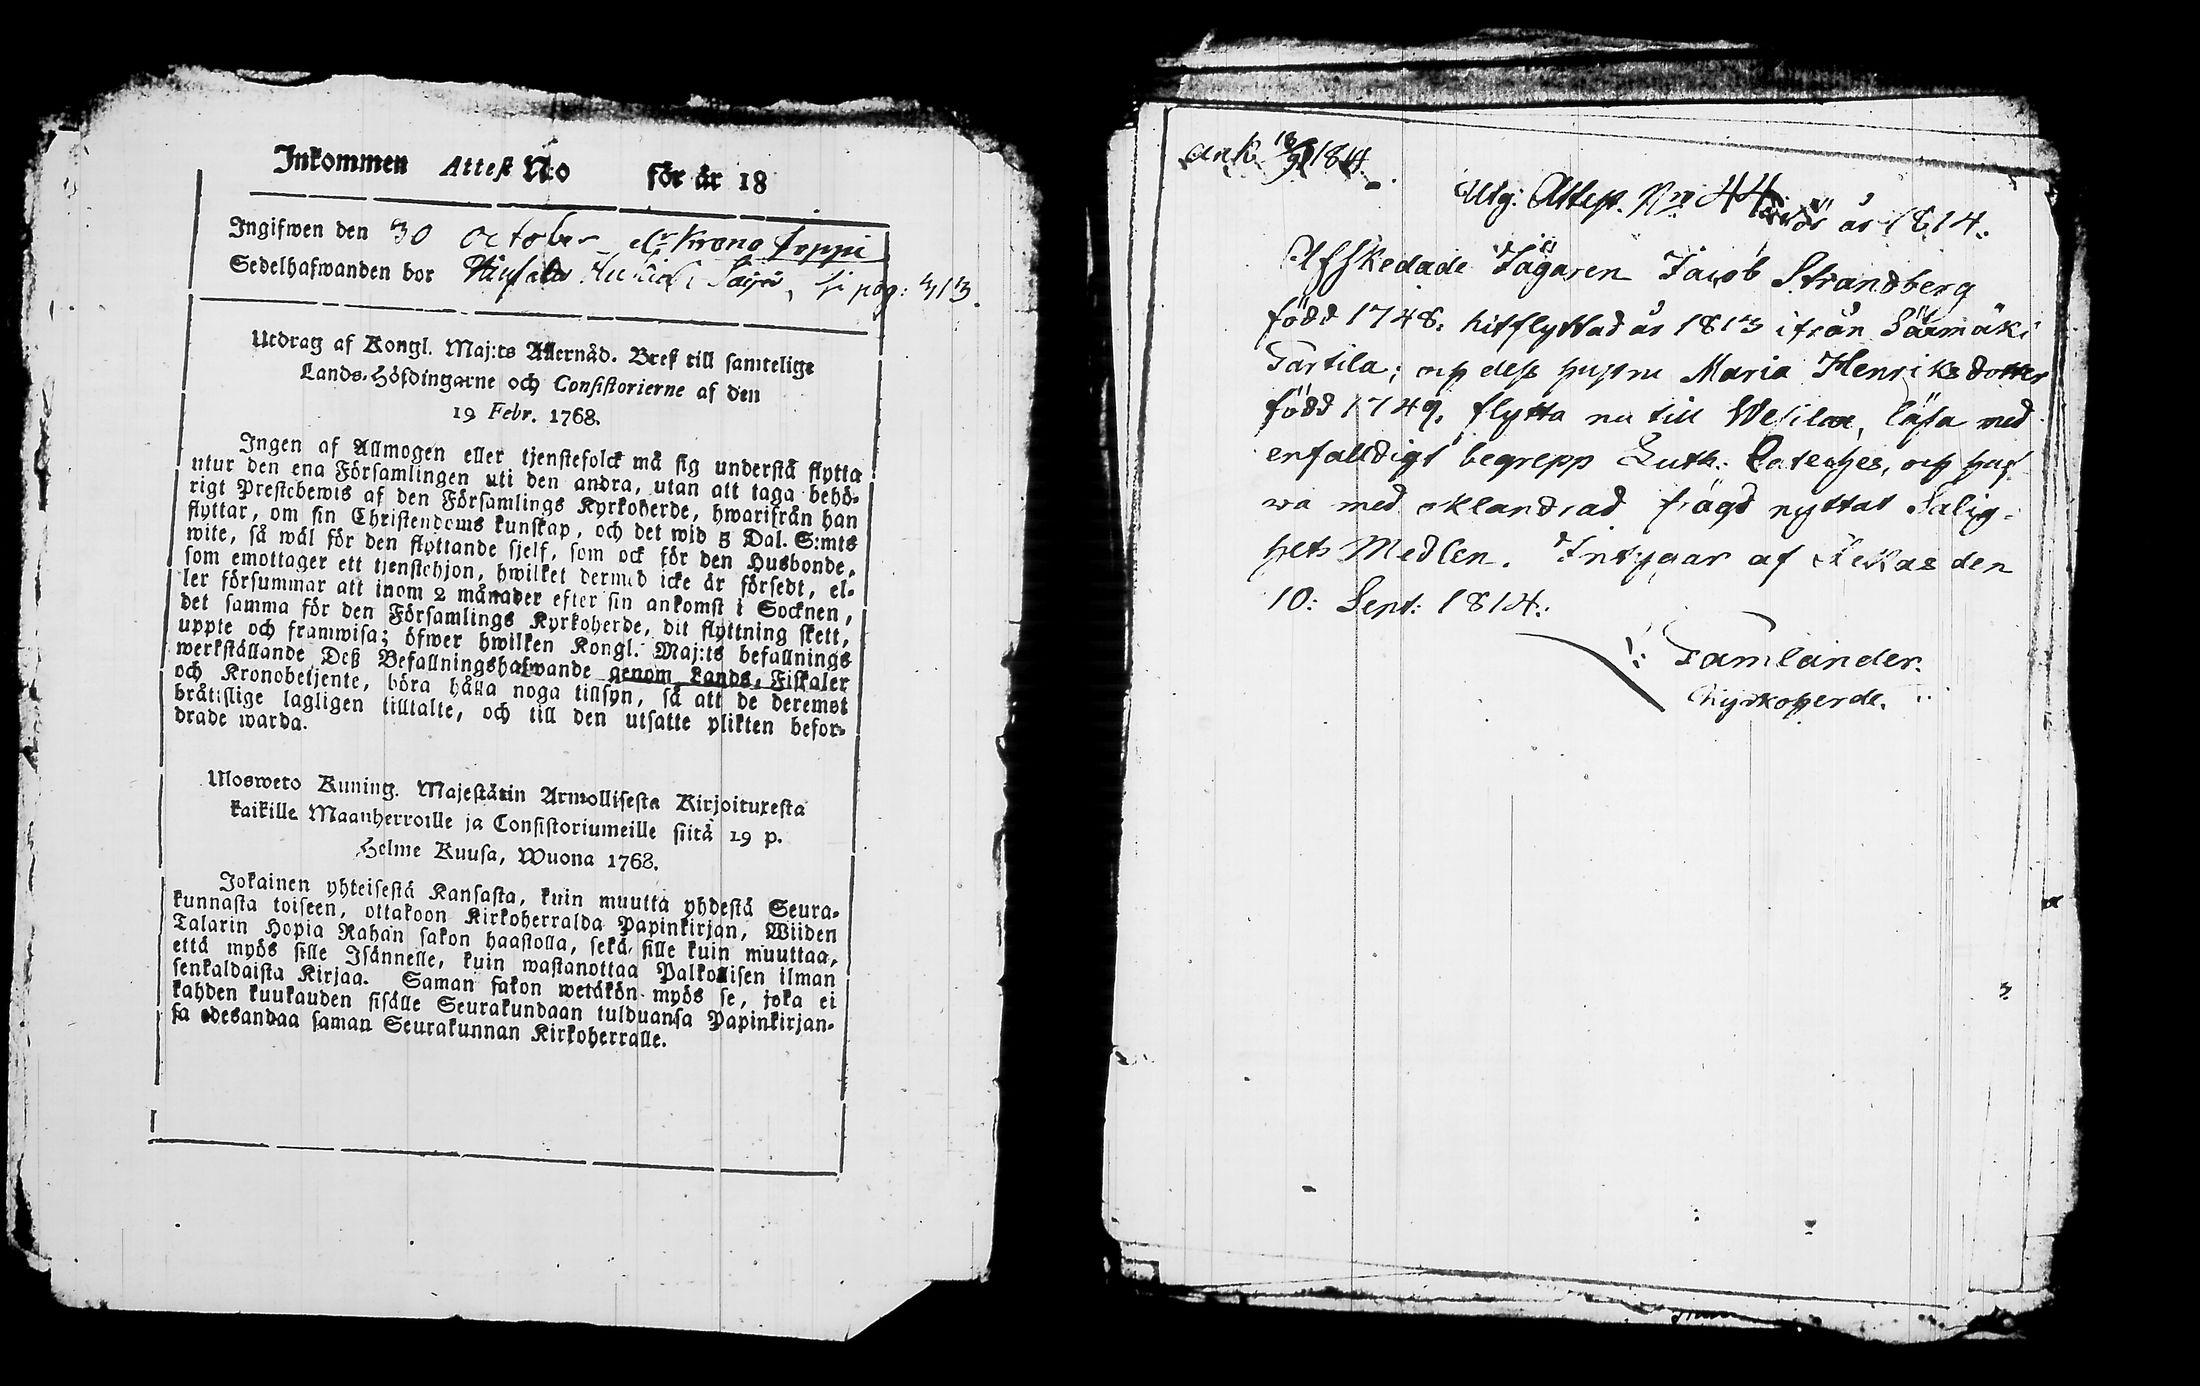 Inkommen Attest No för år 18
Ingifwen den 30 October
Sedelhafwanden bor pag: 313.
Utdrag af Kongl. Maj:ts Allernåd. Bref till samtelige
Lands-Höfdingarne och Consistorierne af den
19 Febr. 1768.
Ingen af Allmogen eller tjenstefolck må sig understå flytta
utur den ena Församlingen uti den andra, utan att taga behö-
rigt Prestebewis af den Församlings Kyrkoherde, hwarifrån han
flyttar, om sin Christendoms kunskap, och det wid 5 Dal. S:mts
wite, så wäl för den flyttande sjelf, som ock för den Husbonde,
som emottager ett tjenstehjon, hwilket dermed icke är försedt, el-
ler försummar att inom 2 månader efter sin ankomst i Socknen,
det samma för den Församlings Kyrkoherde, dit flyttning skett,
uppte och framwisa; öfwer hwilken Kongl. Maj:ts befallnings
werkställande Deß Befallningshafwande genom Lands-Fiskaler
och Kronobetjente, böra hålla noga tillsyn, så att de deremot
bråtislige lagligen tilltalte, och till den utsatte plikten befor-
drade warda.
Ulosweto Kuning. Majestätin Armollisesta Kirjoituxesta
kaikille Maanherroille ja Consistoriumeille siitä 19 p.
Helme Kuusa, Wuona 1768.
Jokainen yhteisestä Kansasta, kuin muutta yhdestä Seura-
kunnasta toiseen, ottakoon Kirkoherralda Papinkirjan, Wiiden
Talarin Hopia Rahan sakon haastolla, sekä sille kuin muuttaa,
että myös sille Isännelle, kuin wastanottaa Palkollisen ilman
senkaldaista Kirjaa. Saman sakon wetäkön myös se, joka ei
kahden kuukauden sisälle Seurakundaan tulduansa Papinkirjan-
sa edesandaa saman Seurakunnan Kirkoherralle.
ank 18/9 1814.
Utg: Attest. Nro 44 för år 1814.
Afskedade Jägaren Jacob Strandberg
född 1748. hitflyttad år 1813 ifrån Säxmäki
Tartila; och dess hustru Maria Henriksdotter
född 1749. flytta nu till Wesilax, läsa med
enfalldigt begrepp Luth: Cateches, och haf
wa med oklandrad frägd nyttat Salig-
hets Medlen. Intygar af Lekas den
10: Sept: 1814.
Tamlander.
Kyrkoherde.